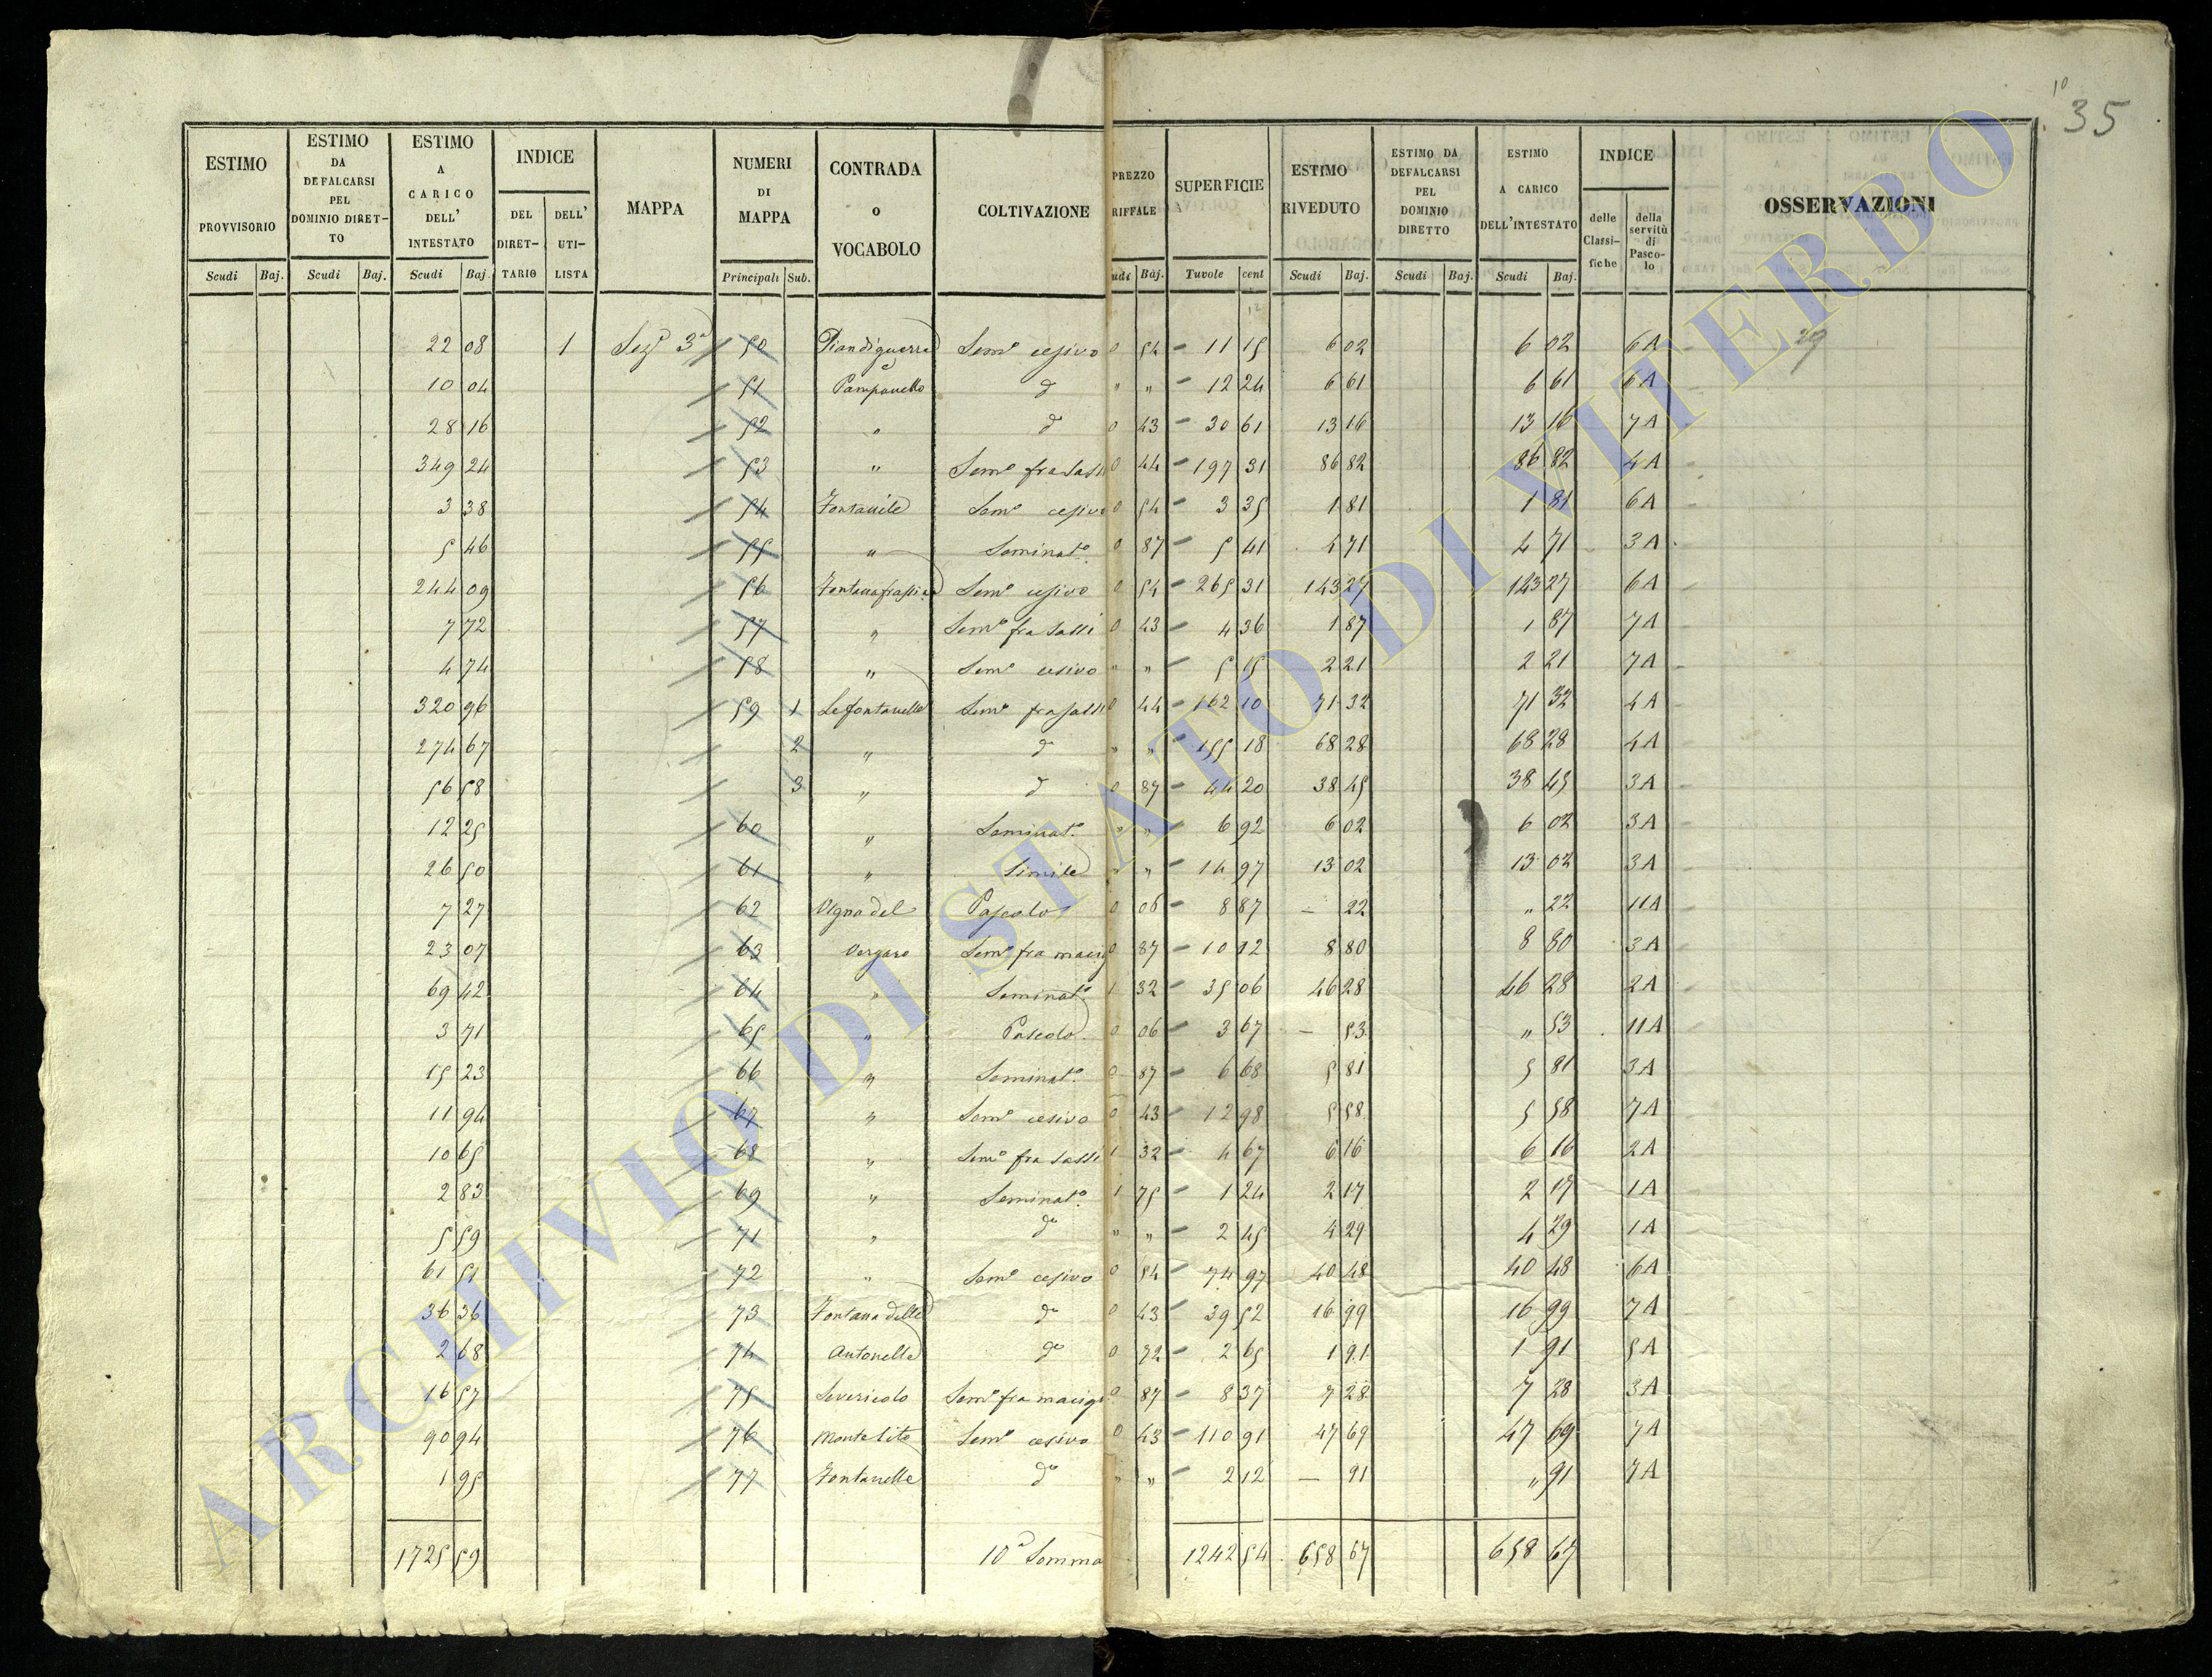 10
35
ESTIMO PROVVISORIO | ESTIMO DA DEFALCARSI PEL DOMINIO DIRETTO | ESTIMO A CARICO DELL' INTESTATO | INDICE | MAPPA | NUMERI DI MAPPA | CONTRADA O VOCABOLO | COLTIVAZIONE | PREZZO RIFFALE | SUPERFICIE | ESTIMO RIVEDUTO | ESTIMO DA DEFALCARSI PEL DOMINIO DIRETTO | ESTIMO A CARICO DELL'INTESTATO | INDICE | OSSERVAZIONI
DEL DIRETTARIO | DELL' UTILISTA | delle Classifiche | della servitù di Pascolo
Scudi Baj. | Scudi Baj. | Scudi Baj. | Principali Sub. | udi Baj. | Tuvole cent | Scudi Baj. | Scudi Baj. | Scudi Baj.
22 08 | 1 | Sezᵉ 3ª | 50 | Piandiguerra | Semᵒ cesivo | 0 54 | 11 15 | 6 02 | 6 02 | 6A | 29
10 04 | 51 | Pampanello | dᵒ | " " | 12 24 | 6 61 | 6 61 | 6A
28 16 | 52 | " | dᵒ | 0 43 | 30 61 | 13 16 | 13 16 | 7A
349 24 | 53 | " | Semᵒ fra sassi | 0 44 | 197 31 | 86 82 | 86 82 | 4A
3 38 | 54 | Fontanile | Semᵒ cesivo | 0 54 | 3 35 | 1 81 | 1 81 | 6A
5 46 | 55 | " | Seminatᵒ | 0 87 | 5 41 | 4 71 | 4 71 | 3A
244 09 | 56 | Semᵒ cesivo | 0 54 | 265 31 | 143 27 | 143 27 | 6A
7 72 | 57 | " | Semᵒ fra sassi | 0 43 | 4 36 | 1 87 | 1 87 | 7A
4 74 | 58 | " | Semᵒ cesivo | " " | 5 15 | 2 21 | 2 21 | 7A
320 96 | 59 | 1 | Le fontanelle | Semᵒ fra sassi | 0 44 | 162 10 | 71 32 | 71 32 | 4A
274 67 | 2 | " | dᵒ | " " | 155 18 | 68 28 | 68 28 | 4A
56 58 | 3 | " | dᵒ | 0 87 | 44 20 | 38 45 | 38 45 | 3A
12 25 | 60 | " | Seminatᵒ | " " | 6 92 | 6 02 | 6 02 | 3A
26 50 | 61 | " | Simile | " " | 14 97 | 13 02 | 13 02 | 3A
7 27 | 62 | Vigna del | Pascolo | 0 06 | 8 87 | — 22 | " 22 | 11A
23 07 | 63 | Vergaro | Semᵒ fra macig | 0 87 | 10 12 | 8 80 | 8 80 | 3A
69 42 | 64 | " | Seminatᵒ | 1 32 | 35 06 | 46 28 | 46 28 | 2A
3 71 | 65 | " | Pascolo | 0 06 | 3 67 | — 53 | " 53 | 11A
15 23 | 66 | " | Seminatᵒ | 0 87 | 6 68 | 5 81 | 5 81 | 3A
11 94 | 67 | " | Semᵒ cesivo | 0 43 | 12 98 | 5 58 | 5 58 | 7A
10 65 | 68 | " | Semᵒ fra sassi | 1 32 | 4 67 | 6 16 | 6 16 | 2A
2 83 | 69 | " | Seminatᵒ | 1 75 | 1 24 | 2 17 | 2 17 | 1A
5 59 | 71 | " | dᵒ | " " | 2 45 | 4 29 | 4 29 | 1A
61 51 | 72 | " | Semᵒ cesivo | 0 54 | 74 97 | 40 48 | 40 48 | 6A
36 36 | 73 | Fontana delle | dᵒ | 0 43 | 39 52 | 16 99 | 16 99 | 7A
2 68 | 74 | Antonelle | dᵒ | 0 72 | 2 65 | 1 91 | 1 91 | 5A
16 57 | 75 | Severicolo | Semᵒ fra macig | 0 87 | 8 37 | 7 28 | 7 28 | 3A
90 94 | 76 | Montelito | Semᵒ cesivo | 0 43 | 110 91 | 47 69 | 47 69 | 7A
1 95 | 77 | Fontanelle | dᵒ | " " | 2 12 | — 91 | " 91 | 7A
1725 59 | 10ª Somma | 1242 54 | 658 67 | 658 67
ARCHIVIO DI STATO DI VITERBO